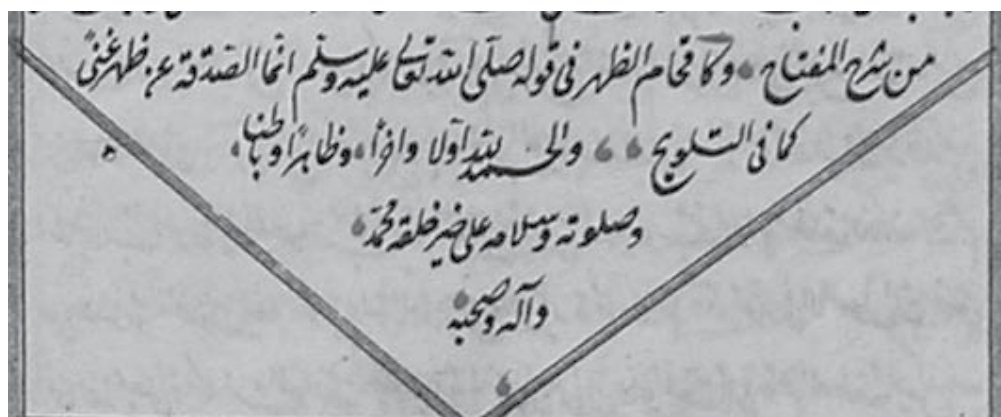 من شرح المفتاح وكاقحام الظهر فى قوله صلى الله تعالى عليه وسلم انما الصدقة عن ظهر غنى
كما فى التلويح والحمد لله اولا واخرا وظاهرا وباطنا
وصلوته وسلامه على خير خلقه محمد
وآله وصحبه